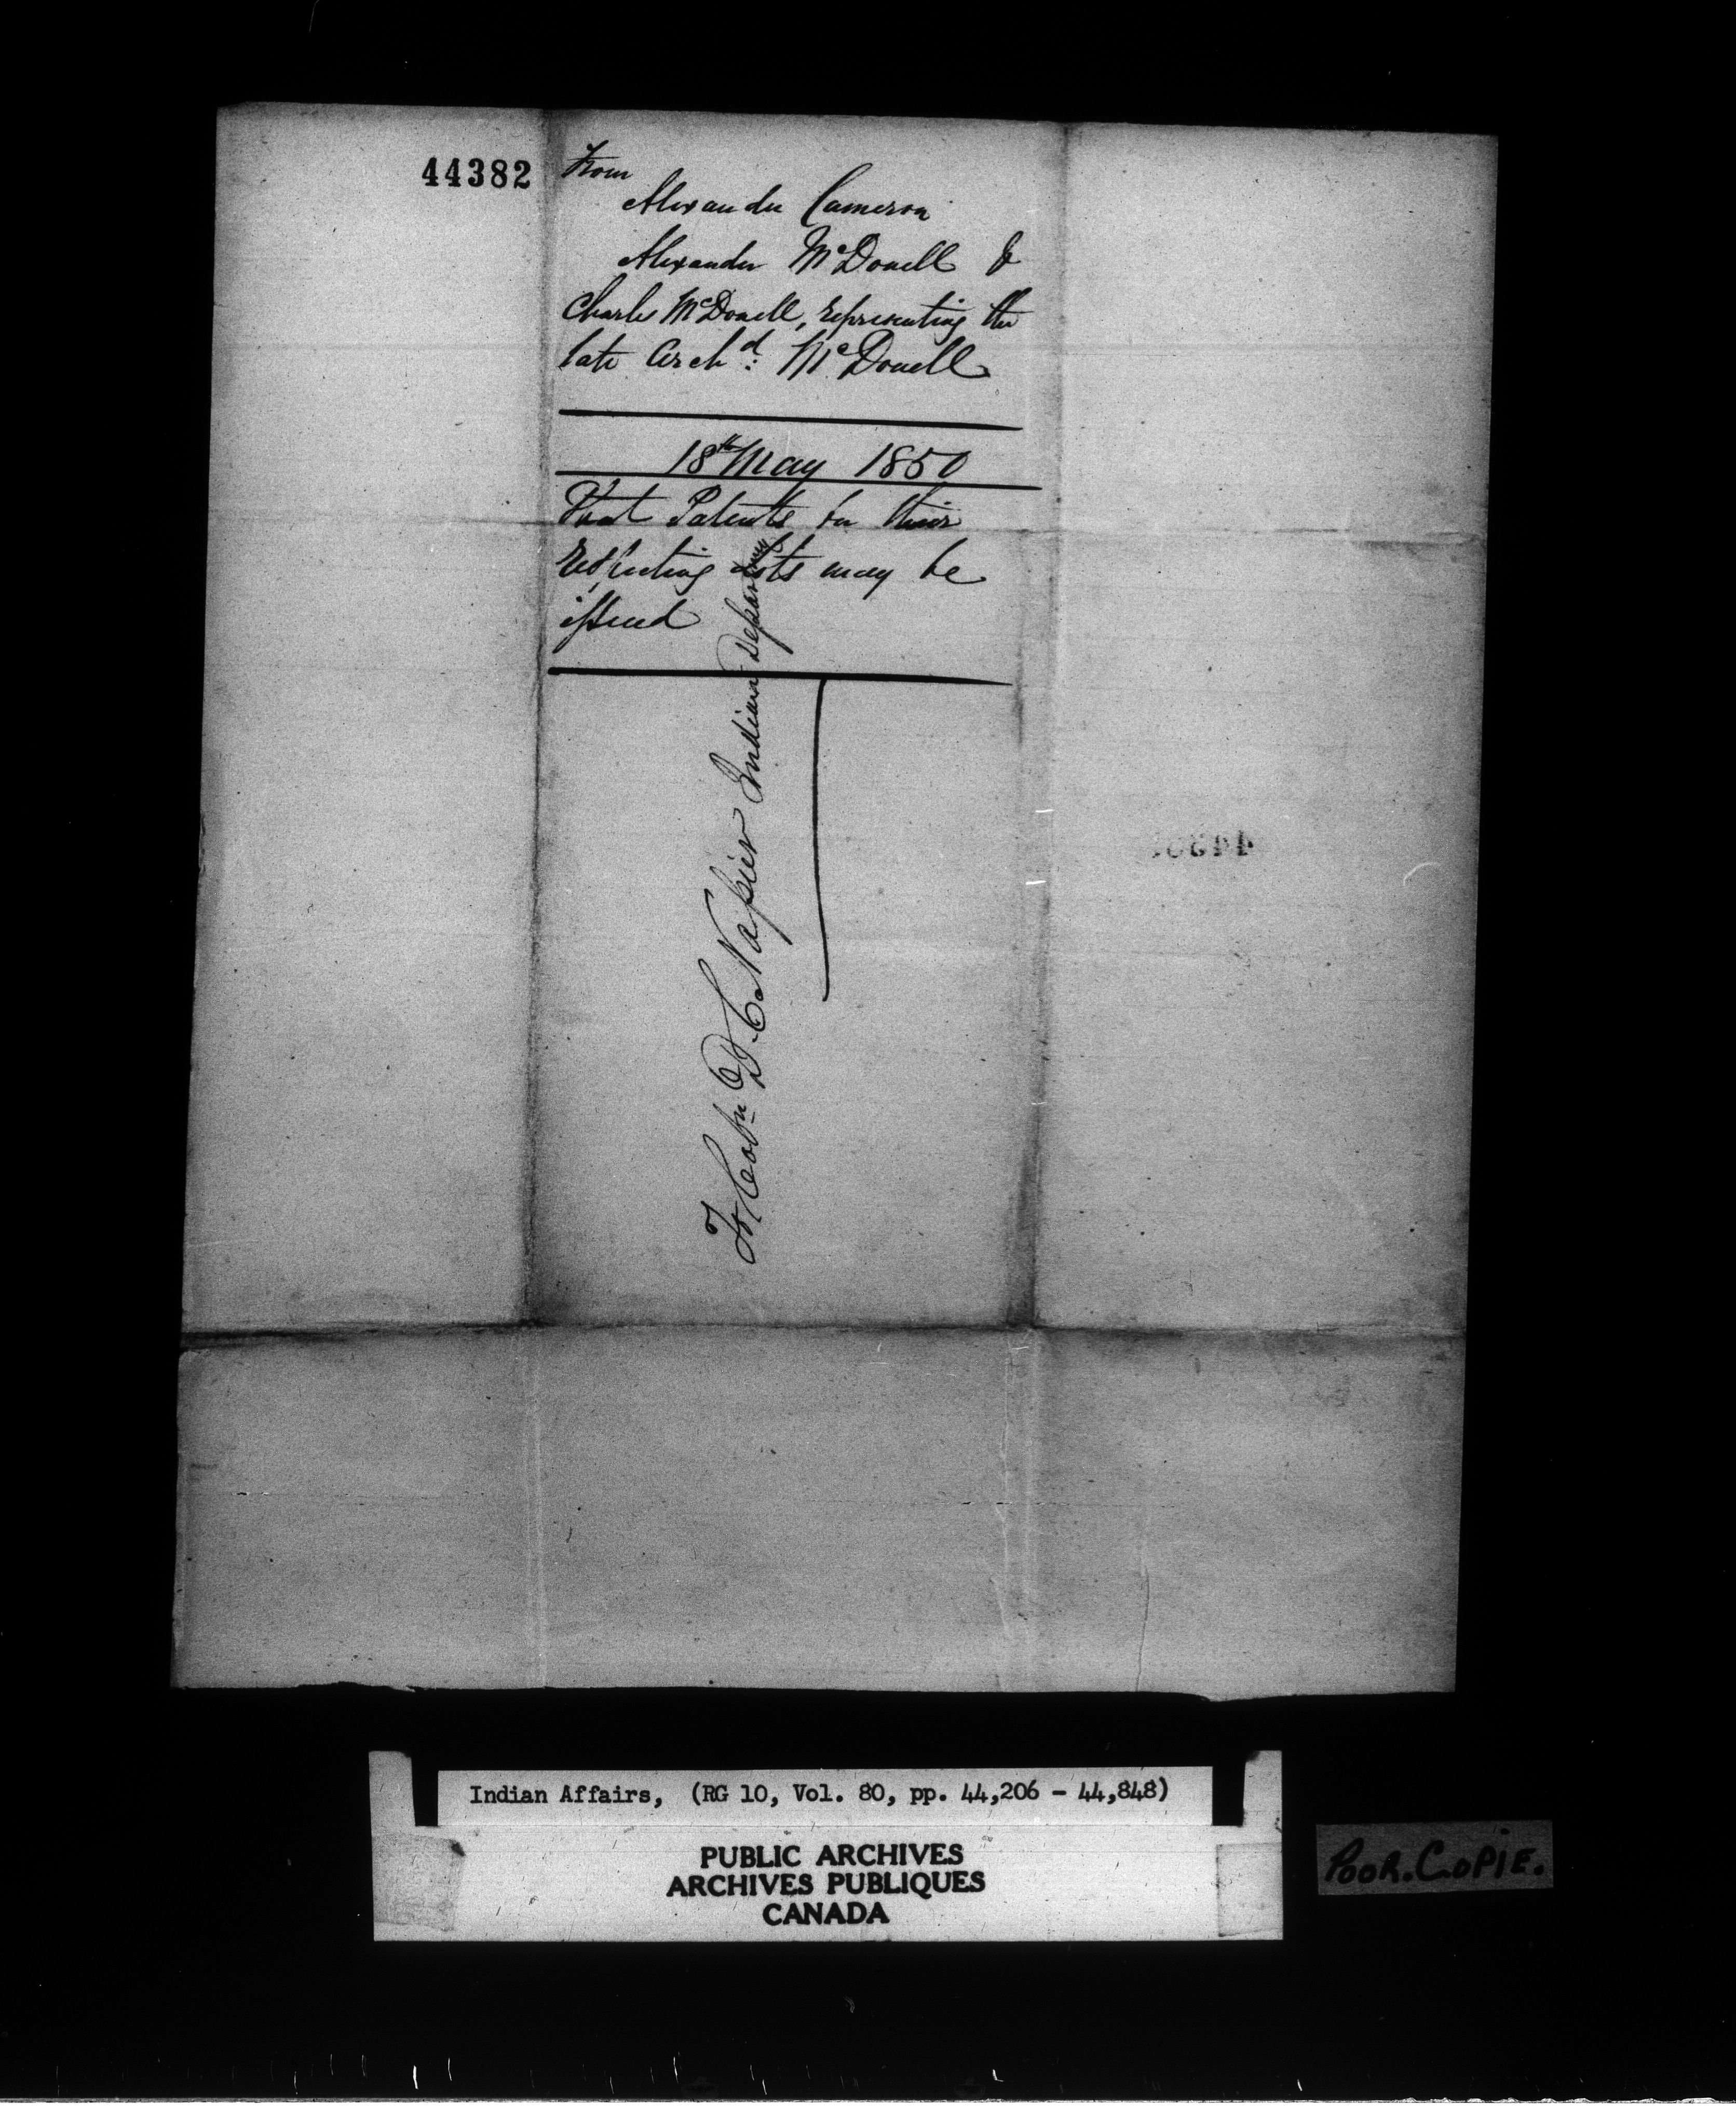 44382
From
Alexander Cameron
Alexander McDonell &
Charles McDonell, representing the
late Archd: McDonell
18th May 1850
That Patents for their
respecting lots may be
issued
To Coln D. C. Napier Indian Department
Indian Affairs, (RG 10, Vol. 80, pp. 44,206 - 44,848)
PUBLIC ARCHIVES
ARCHIVES PUBLIQUES
CANADA
POOR.COPIE.